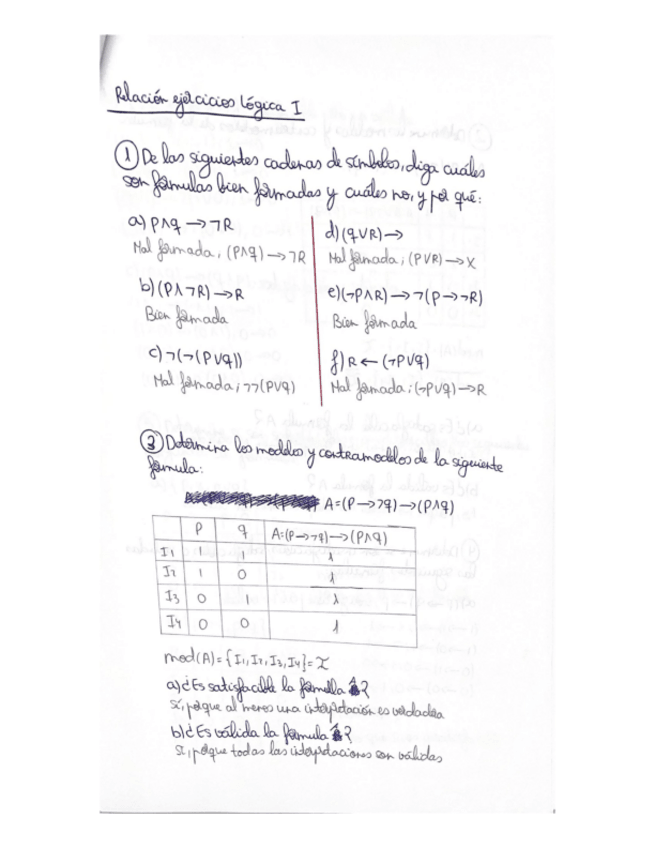 Relación ejercicios Lógica I
① De las siguientes cadenas de símbolos, diga cuáles
son fórmulas bien formadas y cuáles no, y por qué:
a) P∧q → ¬R
Mal formada; (P∧q) → ¬R
b) (P∧¬R) → R
Bien formada
c) ¬(¬(P∨q))
Mal formada; ¬¬(P∨q)
d) (q∨R) →
Mal formada; (P∨R) → X
e) (¬P∧R) → ¬(P→¬R)
Bien formada
f) R ← (¬P∨q)
Mal formada; (¬P∨q) → R
③ Determina los modelos y contramodelos de la siguiente
fórmula:
A=(P→¬q)→(P∧q)
P q A=(P→¬q)→(P∧q)
I1 1 1 1
I2 1 0 1
I3 0 1 1
I4 0 0 1
mod(A)={I1,I2,I3,I4}=I
a) ¿Es satisfacible la fórmula A?
Sí, porque al menos una interpretación es verdadera
b) ¿Es válida la fórmula A?
Sí, porque todas las interpretaciones son válidas